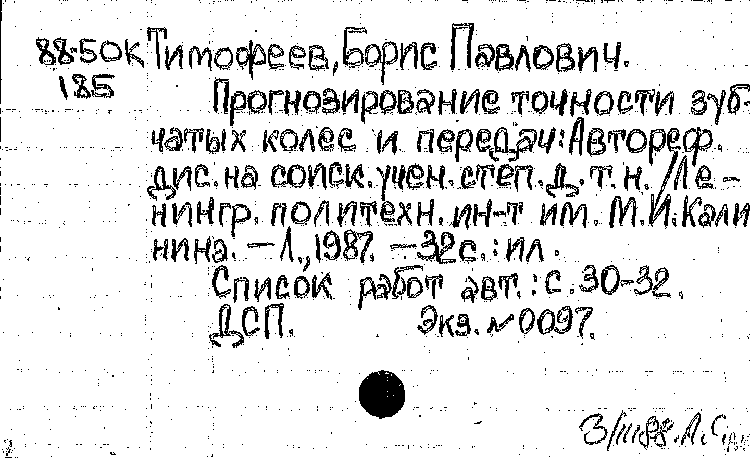 88-50К Тимофеев, Борис Павлович.
185
Прогнозирование точности зуб-
чатых колес и передач: Автореф.
дис. на соиск. учен. степ. д. т. н. / Ле-
нингр. политехн. ин-т им. М. И. Кали
нина. – Л., 1987. – 32 с. : ил.
Список работ авт.: с. 30-32.
ДСП. Экз. № 0097.
3/III 88. А. С.